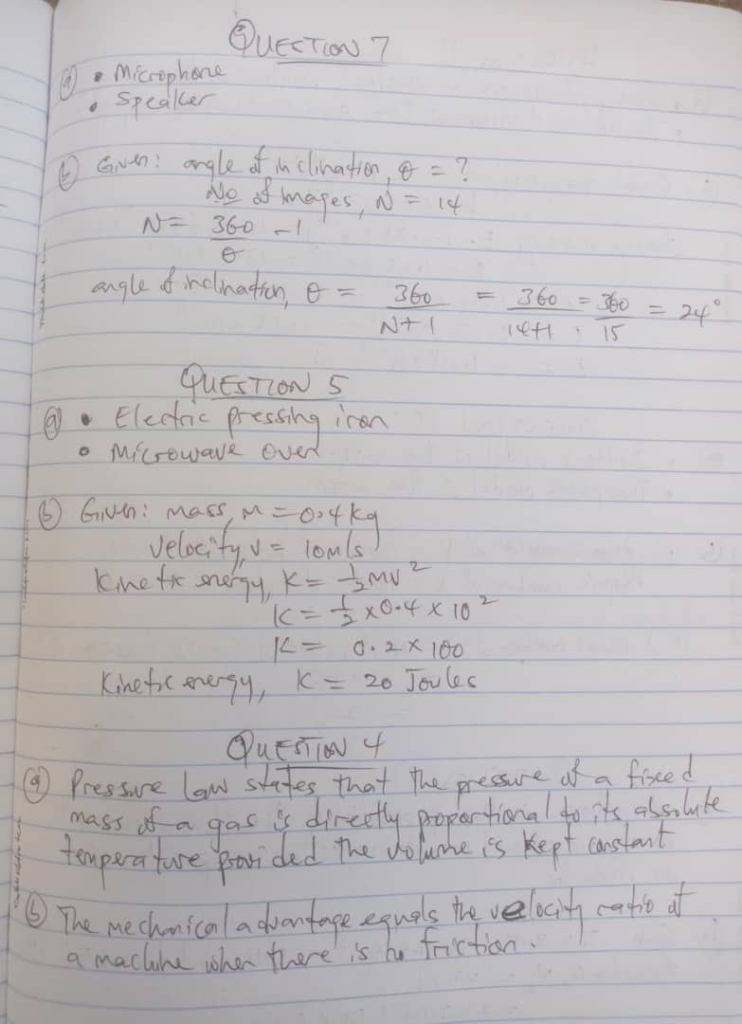 QUESTION 7
(a) • Microphone
• Speaker
(b) Given: angle of inclination, θ = ?
No of Images, N = 14
N = 360/θ - 1
angle of inclination, θ = 360/N+1 = 360/14+1 = 360/15 = 24°
QUESTION 5
(a) • Electric pressing iron
• Microwave oven
(b) Given: mass, m = 0.4 kg
velocity, v = 10m/s
Kinetic energy, K = 1/2 mv²
K = 1/2 × 0.4 × 10²
K = 0.2 × 100
Kinetic energy, K = 20 Joules
QUESTION 4
(a) Pressure Law states that the pressure of a fixed
mass of a gas is directly proportional to its absolute
temperature provided the volume is kept constant
(b) The mechanical advantage equals the velocity ratio of
a machine when there is no friction.